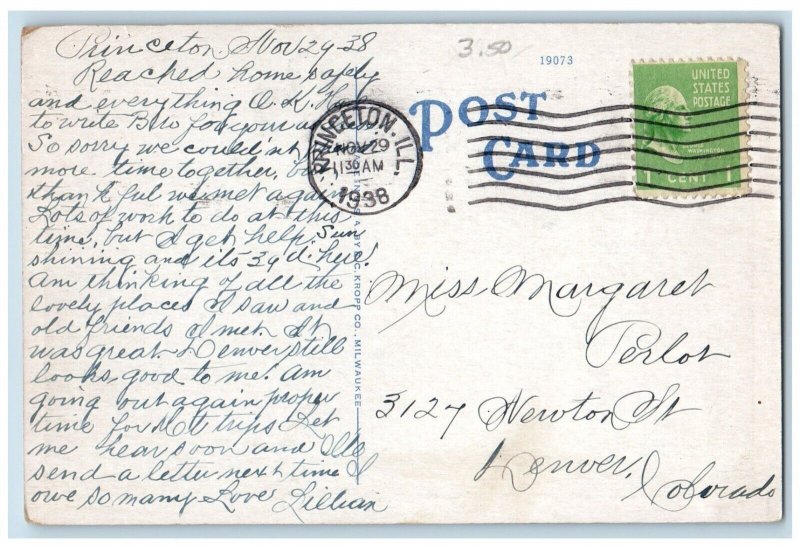 Princeton, Nov 29-38
Reached home safely
and everything O.K. Have
to write
So sorry we couldn't
more time together, but
thankful we met again
Lots of work to do at this
time, but I get help. Sun
shining and its 39 d. here!
Am thinking of all the
lovely places I saw and
old friends I met. It
was great. Denver still
looks good to me! Am
going out again proper
time for trips Let
me hear soon and I'll
send a letter next time I
owe so many. Love Lillian
3.50
19073
POST
CARD
PRINCETON, ILL.
NOV 29
11 30 AM
1938
UNITED
STATES
POSTAGE
WASHINGTON
1 CENT 1
BY E.C. KROPP CO., MILWAUKEE
Miss Margaret
Perlot
3127 Newton St
Denver,
Colorado